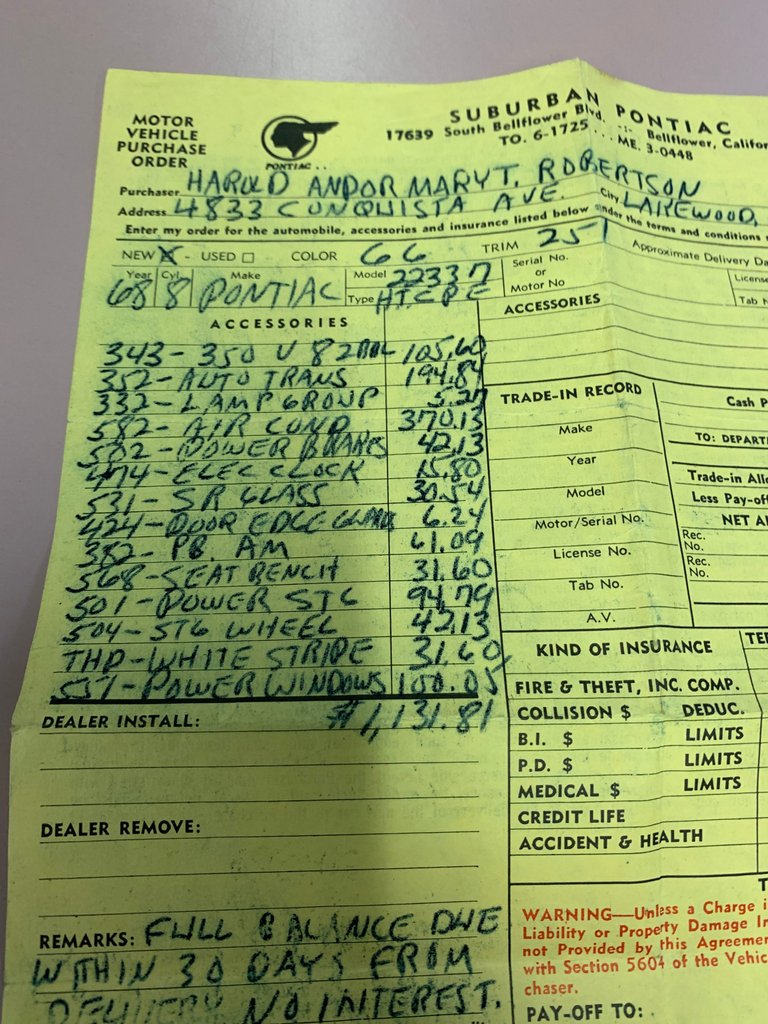 MOTOR
VEHICLE
PURCHASE
ORDER
PONTIAC
SUBURBAN PONTIAC
17639 South Bellflower Blvd. Bellflower, Califor
TO. 6-1725 ... ME. 3-0448
Purchaser HAROLD ANDOR MARY T. ROBERTSON
Address 4833 CONQUISTA AVE. City LAKEWOOD,
Enter my order for the automobile, accessories and insurance listed below under the terms and conditions
NEW X - USED □ COLOR 66 TRIM 251 Approximate Delivery Da
Year 68 Cyl. 8 Make PONTIAC Model 22337 Type HTCPE Serial No. or Motor No License Tab N
ACCESSORIES
343-350 V 8 2BBL 105.60
352-AUTO TRANS 194.84
332-LAMP GROUP 5.27
582-AIR COND 370.13
502-POWER BRAKES 42.13
474-ELEC CLOCK 15.80
531-SR GLASS 30.54
424-DOOR EDGE GUARD 6.24
382-PB. AM 61.09
568-SEAT BENCH 31.60
501-POWER STG 94.79
504-STG WHEEL 42.13
THD-WHITE STRIPE 31.60
551-POWER WINDOWS 100.05
$1,131.81
DEALER INSTALL:
DEALER REMOVE:
REMARKS: FULL BALANCE DUE
WITHIN 30 DAYS FROM
DELIVERY NO INTEREST.
ACCESSORIES
TRADE-IN RECORD
Make
Year
Model
Motor/Serial No.
License No.
Tab No.
A.V.
Cash P
TO: DEPART
Trade-in Allo
Less Pay-off
NET A
Rec.
No.
Rec.
No.
KIND OF INSURANCE TE
FIRE & THEFT, INC. COMP.
COLLISION $ DEDUC.
B.I. $ LIMITS
P.D. $ LIMITS
MEDICAL $ LIMITS
CREDIT LIFE
ACCIDENT & HEALTH
T
WARNING—Unless a Charge i
Liability or Property Damage In
not Provided by this Agreeme
with Section 5604 of the Vehic
chaser.
PAY-OFF TO: